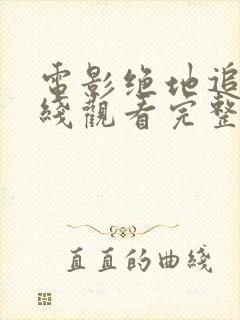 電影绝地追
綫觀看完整
直直的曲綫